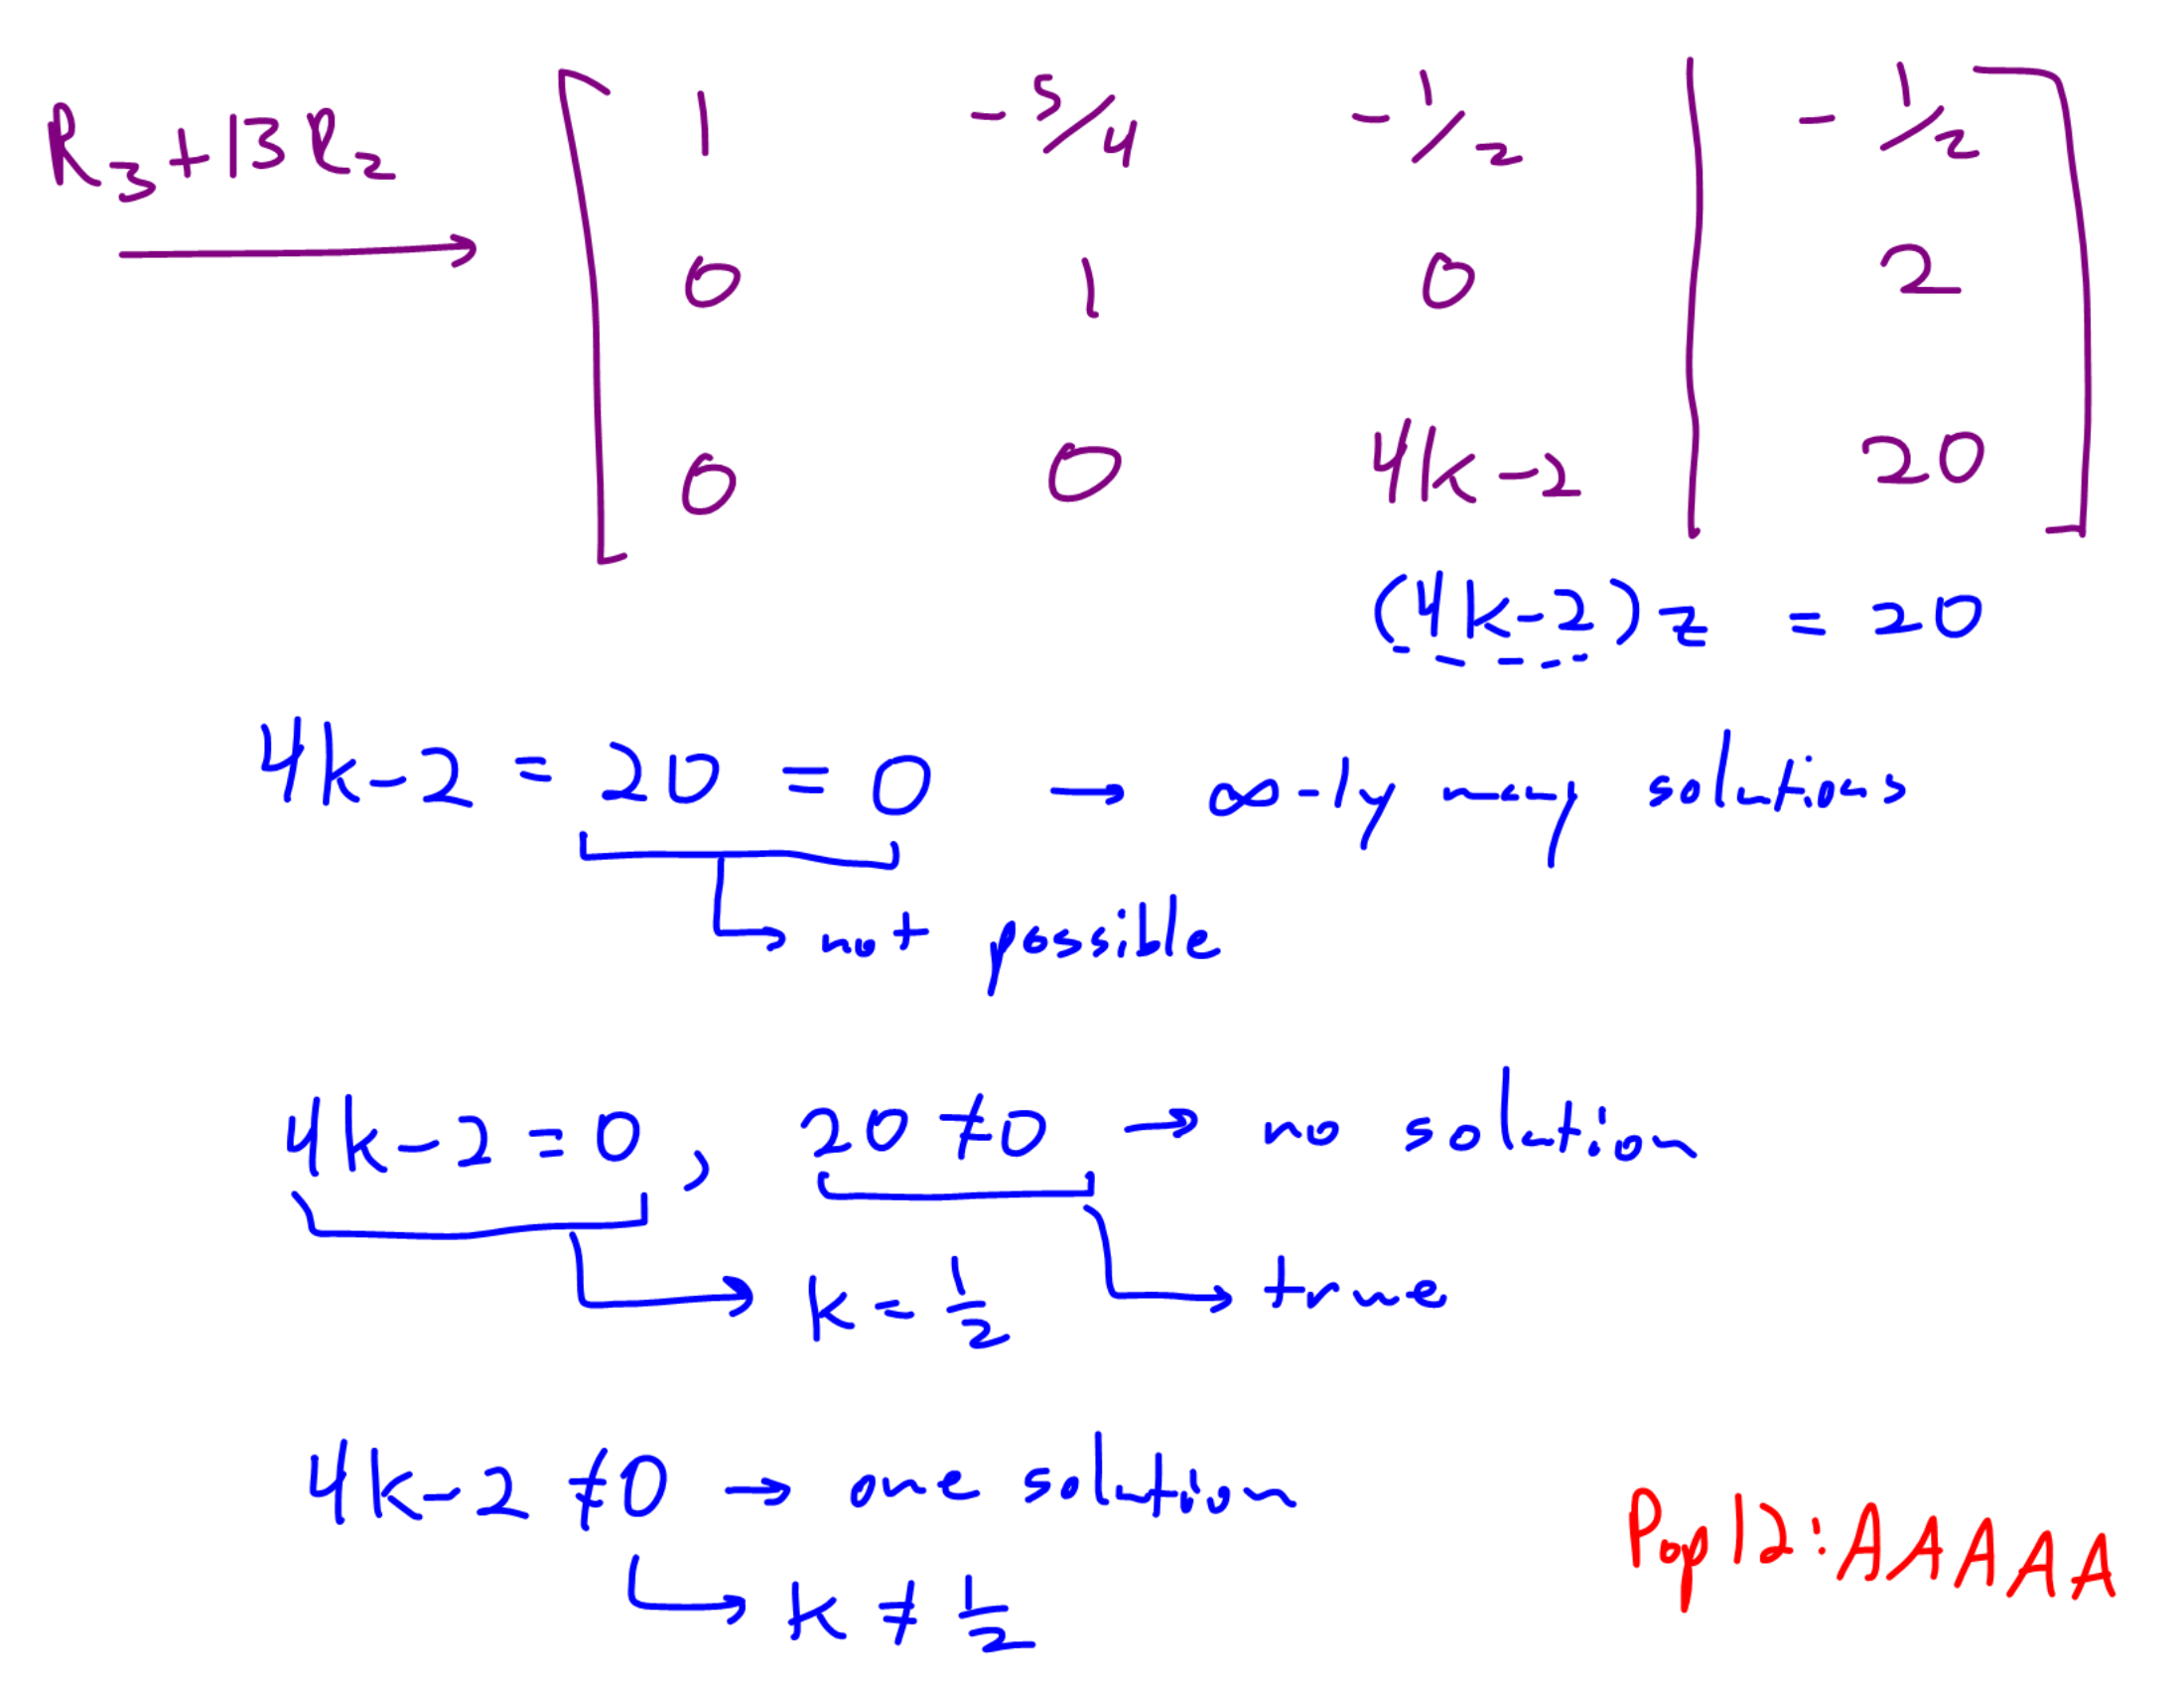 R₃+13R₂ → [ 1 -5/4 -1/2 | -1/2 ]
[ 0 1 0 | 2 ]
[ 0 0 4k-2 | 20 ]
(4k-2)z = 20
4k-2 = 20 = 0 → ∞-ly many solutions
↳ not possible
4k-2=0, 20≠0 → no solution
↳ k = 1/2 ↳ true
4k-2≠0 → one solution
Pop12: AAAAA
↳ k ≠ 1/2